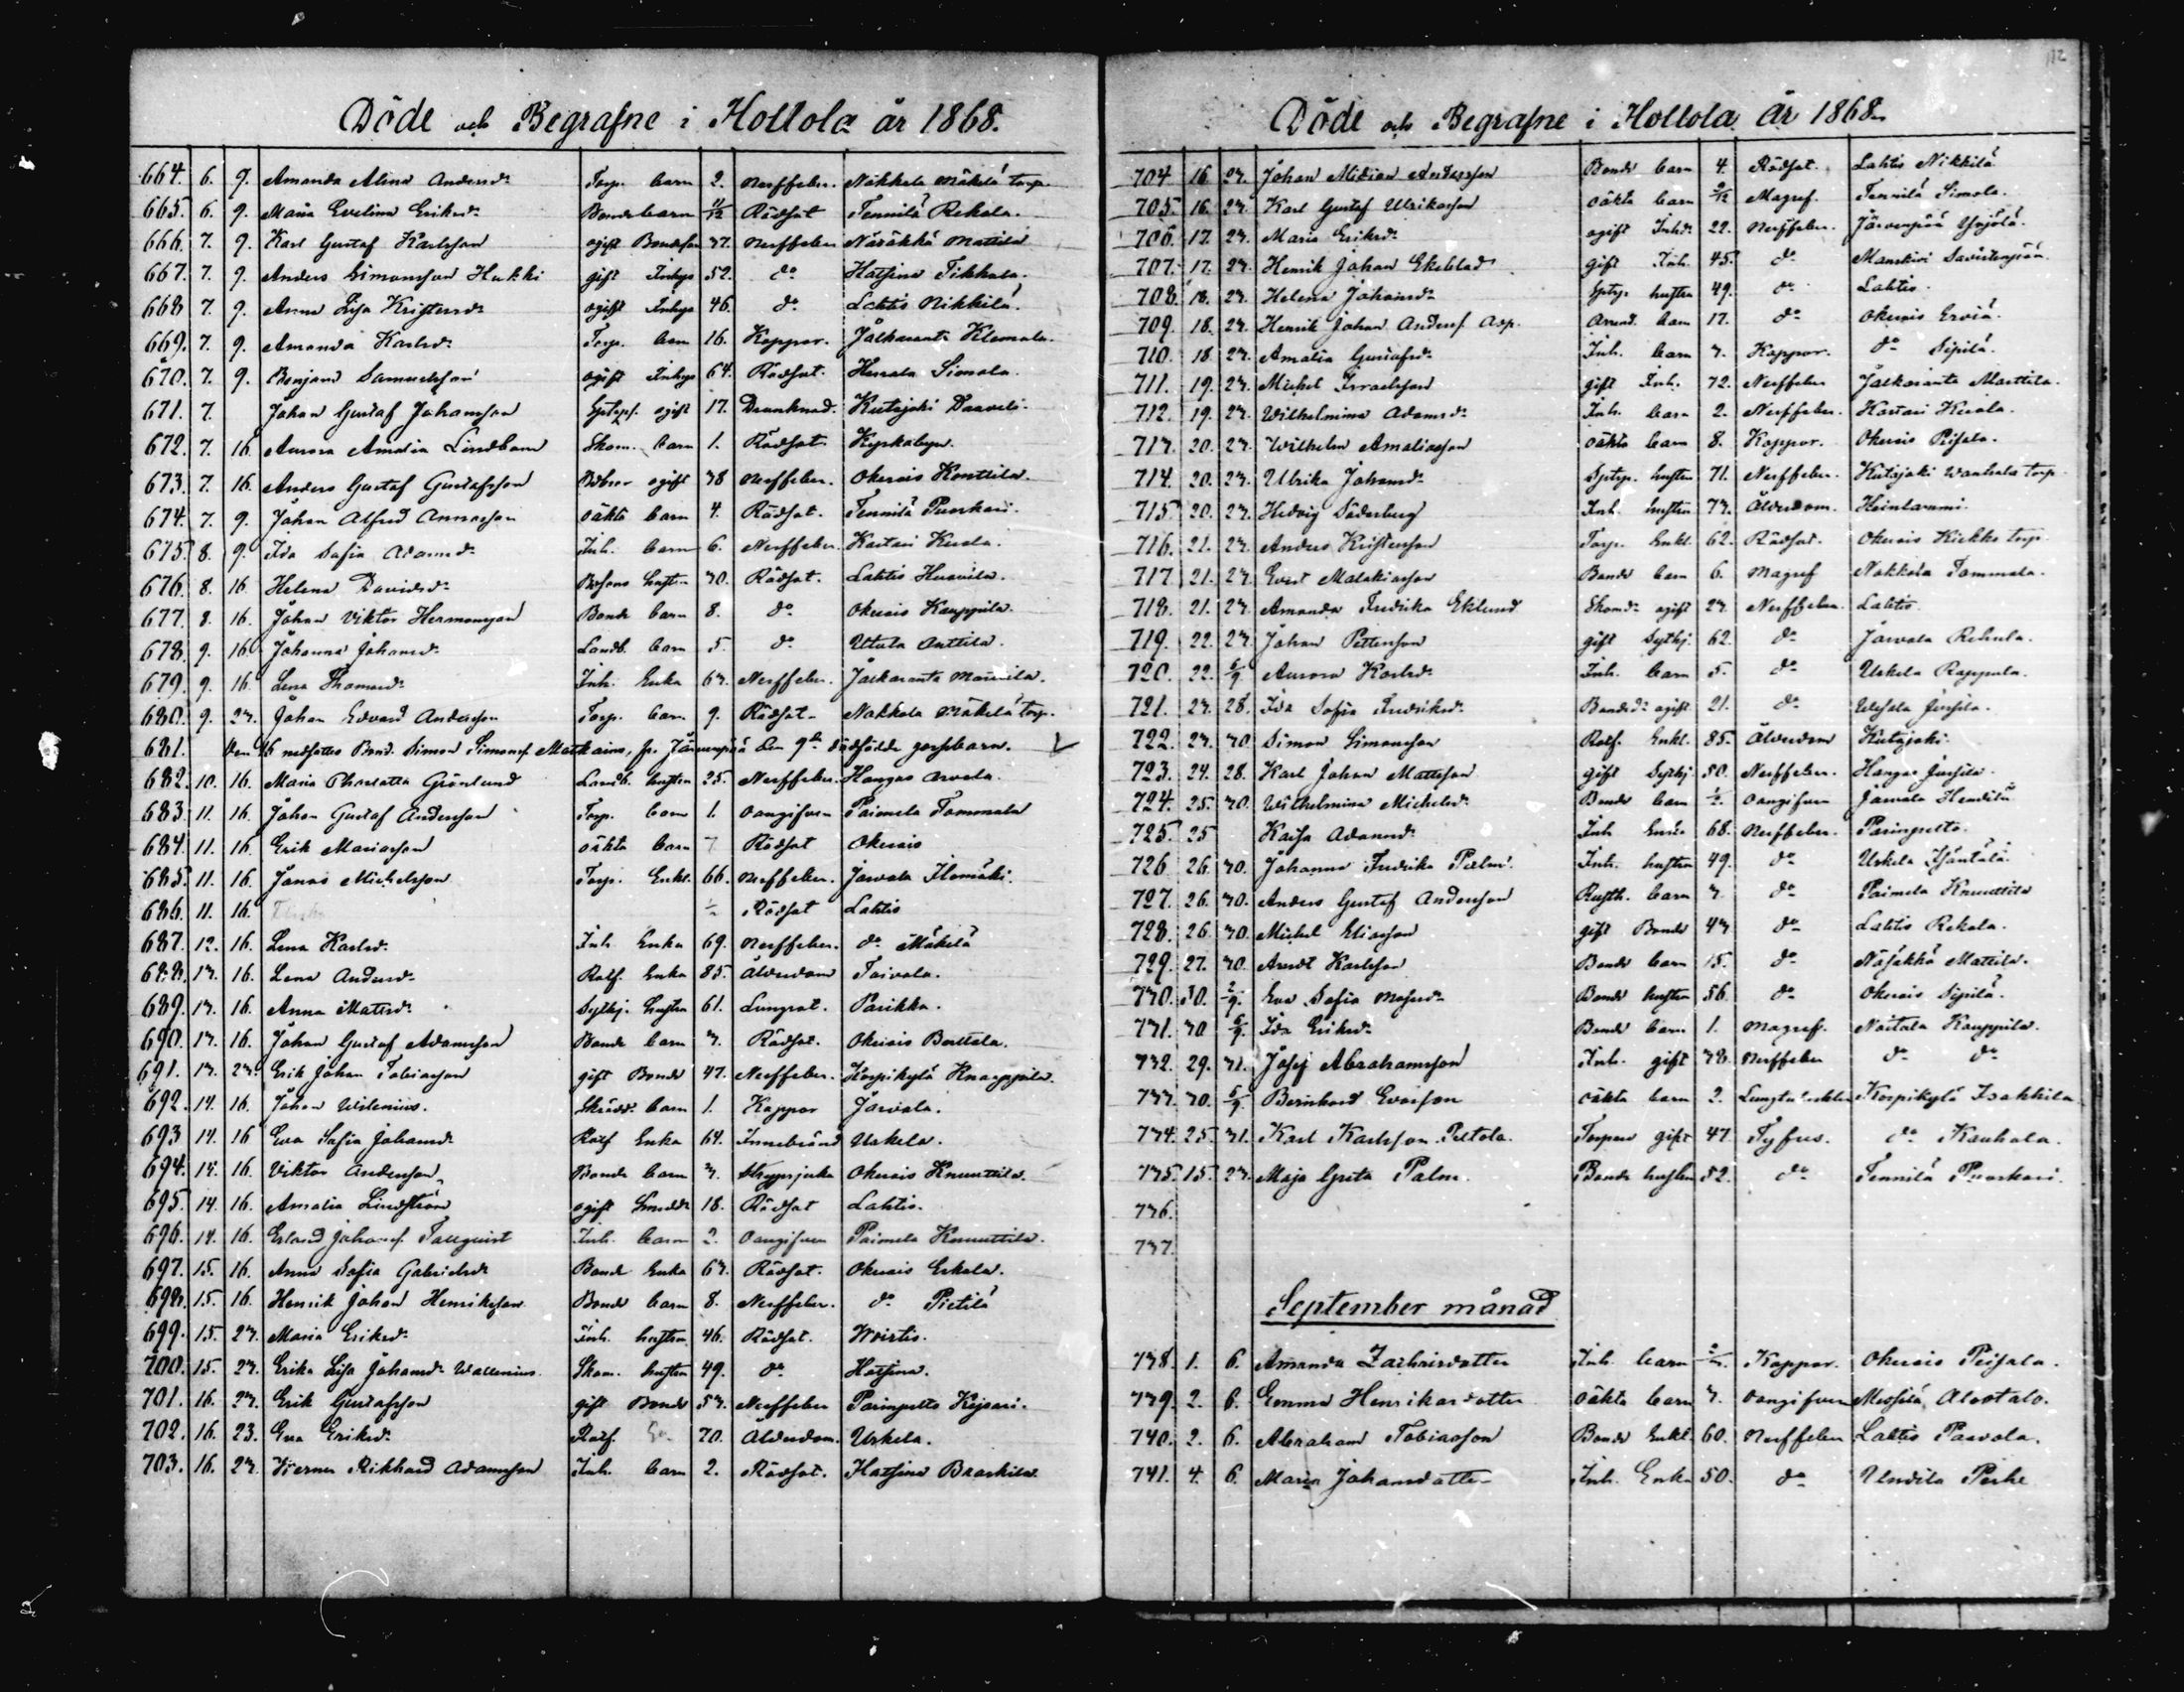 112
Döde och Begrafne i Hollola år 1868.
664. 6. 9. Amanda Alina Andersdr Torp. barn 2. Nerffeber. Nokkola Mäkelä torp.
665. 6. 9. Maria Evelina Eriksdr Bonde barn 11/12 Rödsot Tennilä Rekola.
666. 7. 9. Karl Gustaf Karlsson ogift Bondeson 37. Nerffeber Näsäkkä Mattila
667. 7. 9. Anders Simonsson Hukki gift Inhys 52. do Hatsina Tikkala.
668 7. 9. Anna Lisa Kristersdr ogift Inhys 46. do Lahtis Nikkilä.
669. 7. 9. Amanda Karlsdr Torp. barn 16. Koppor. Jalkaranta Klemola.
670. 7. 9. Benjam Samuelsson ogift Inhys 64. Rödsot. Herrala Simola.
671. 7. Johan Gustaf Johansson ogift 17. Drunknad. Kutajoki
672. 7. 16. Aurora Amalia Lindbom Skom. barn 1. Rödsot Kyrkobyn.
673. 7. 16. Anders Gustaf Gustafsson ogift 38 Nerffeber. Okerois Konttila.
674. 7. 9. Johan Alfred Annasson oäkta barn 4. Rödsot. Tennilä Puorkari.
675. 8. 9. Ida Sofia Adamsdr Inh. barn 6. Nerffeber. Kastari Kerola.
676. 8. 16 Helena Davidsdr hustru 30. Rödsot. Lahtis Hersvila.
677. 8. 16. Johan Viktor Hermansson Bonde barn 8. do Okerois Kauppila.
678. 9. 16 Johanna Johansdr Landb. barn 5. do Utula Anttila.
679. 9. 16. Lena Thomasdr Inh. Enka 63. Nerffeber. Jalkaranta Mannila.
680. 9. 23. Johan Edvard Andersson Torp. barn 9. Rödsot. Nokkola Mäkelä torp.
681. Den 16 nedsattes Bond. Simon Simonss. Matkains, fr. Järvenpää den 9de dödfödde gossebarn.
682. 10. 16. Maria Charlotta Grönlund Landb. hustru 25. Nerffeber. Hangas Arvela.
683. 11. 16. Johan Gustaf Andersson Torp. barn 1. oangifven Paimela Tommala
684. 11. 16. Erik Mariasson oäkta barn 7 Rödsot Okerois
685. 11. 16. Jonas Michelsson Torp. Enkl. 66. Nerffeber. Jarvala Ilomäki.
686. 11. 16. 1/2 Rödsot Lahtis
687. 12. 16. Lena Karlsdr Inh. Enka 69. Nerffeber. do Mäkelä
688. 13. 16. Lena Andersdr Rotf. Enka 85. Ålderdom Toivola.
689. 13. 16. Anna Matsdr Sythj. hustru 61. Lungsot. Parikka.
690. 13. 16. Johan Gustaf Adamsson Bonde barn 3. Rödsot. Okerois Berttala.
691. 13. 23. Erik Johan Tobiasson gift Bonde 47. Nerffeber. Korpikylä Knaappila.
692. 14. 16. Johan Wilenius. Skrädd. barn 1. Koppor Jarvala.
693 14. 16 Eva Sofia Johansdr Rotf Enka 64. Innebränd Urkela.
694. 14. 16. Viktor Andersson Bonde barn 3. Strypsjuka Okerois Knuuttila.
695. 14. 16. Amalia Lindström ogift 18. Rödsot Lahtis.
696. 14. 16. Erland Johanss. Tallqvist Inh. barn 2. oangifven Paimela Knuuttila.
697. 15. 16. Anna Sofia Gabrielsdr Bonde Enka 63. Rödsot. Okerois Erkola.
698. 15. 16. Henrik Johan Henriksson Bonde barn 8. Nerffeber. do Pietilä
699. 15. 23. Maria Eriksdr Inh. hustru 46. Rödsot. Woistis.
700. 15. 23. Erika Lisa Johansdr Wallenius Skom. hustru 49. do Hatsina.
701. 16. 23. Erik Gustafsson gift Bonde 53. Nerffeber Parinpelto Keisari.
702. 16. 23. Eva Eriksdr Rotf. 70. Ålderdom. Urkela.
703. 16. 23. Werner Rikhard Adamsson Inh. barn 2. Rödsot. Hatsina Braskila
Döde och Begrafne i Hollola år 1868.
704 16 23. Johan Midian Andersson Bonde barn 4. Rödsot. Lahtis Nikkilä
705. 16. 23. Karl Gustaf Ulrikasson oäkta barn 2/12 Magref. Tennilä Simola.
706. 17. 23. Maria Eriksdr ogift Inhd. 22. Nerffeber. Järvenpää Yrjölä.
707. 17. 23. Henrik Johan Ekeblad gift Inh. 45. do Manskivi
708. 18. 23. Helena Johansdr hustru 49. do Lahtis.
709. 18. 23. Henrik Johan Anderss. Asp. Arend. barn 17. do Okerois Erviä.
710. 18 23. Amalia Gustafsdr Inh. barn 3. Koppor. do Sipilä.
711. 19. 23. Michel Israelsson gift Inh. 72. Nerffeber Jalkaranta Marttila.
712. 19. 23. Wilhelmina Adamsdr Inh. barn 2. Nerffeber. Kastari Kerola.
713. 20. 23. Wilhelm Amaliasson oäkta barn 8. Koppor. Okerois Peisala.
714. 20. 23. Ulrika Johansdr hustru 71. Nerffeber. Kutajoki Wanhala torp
715 20. 23. Hedvig Söderberg Inh. hustru 73. Ålderdom. Heinlammi.
716. 21. 23. Anders Kristersson Torp. Enkl. 62. Rödsot. Okerois Kiekko torp
717 21. 23 Evert Malakiasson Bonde barn 6. Magref Nokkola Tommola.
718. 21. 23. Amanda Fredrika Eklund Skomdr ogift 23. Nerffeber. Lahtis.
719. 22. 23 Johan Pettersson gift Sythj. 62. do Jarvala Rehula.
720. 22. 6/9 Aurora Karlsdr Inh. barn 5. do Urkela Rappula.
721. 23. 28. Ida Sofia Fredriksdr Bondedr ogift 21. do Uskila Jussila.
722. 23. 30 Simon Simonsson Rotf. Enkl. 85. Ålderdom Kutajoki.
723. 24. 28. Karl Johan Mattsson gift Sythj. 50. Nerffeber. Hangas Jussila.
724. 25. 30. Wilhelmina Michelsdr Bonde barn 1/2. oangifven Jarvala Hendilä
725 25 Kaisa Adamsdr Inh Enka 68. Nerffeber. Parinpelto.
726 26. 30. Johanna Fredrika Palm. Inh. hustru 49. do Urkela Isäntälä.
727. 26. 30. Anders Gustaf Andersson Rusth. barn 3. do Paimela Knuuttila
728. 26. 30. Michel Eliasson gift Bonde 43 do Lahtis Rekola.
729. 27. 30. Arvid Karlsson Bonde barn 15. do Näsäkkä Mattila.
730. 30. 2/9. Eva Sofia Matsdr Bonde hustru 56. do Okerois Sipilä.
731. 30 6/9. Ida Eriksdr Bonde barn 1. Magref. Noitala Kauppila.
732. 29. 31. Josef Abrahamsson Inh. gift 38. Nerffeber do do
733. 30. 6/9. Bernhard Evasson oäkta barn 2. Korpikylä Isakkila
734. 25. 31. Karl Karlsson Peltola. Torpare gift 47 Tyfus. do Kauhala.
735. 15. 23. Maja Greta Palm. Bonde hustru 52. do Tennilä Puorkari
736.
737.
September månad
738. 1. 6. Amanda Zachrisdotter Inh. barn Koppor. Okerois Peisala.
739. 2. 6. Emma Henrikasdotter oäkta barn 3. oangifven Messilä Alastalo.
740. 2. 6. Abraham Tobiasson Bonde Enkl. 60. Nerffeber Lahtis Paavola.
741. 4. 6. Maria Johansdotter Inh. Enka 50. do Undila Perhe